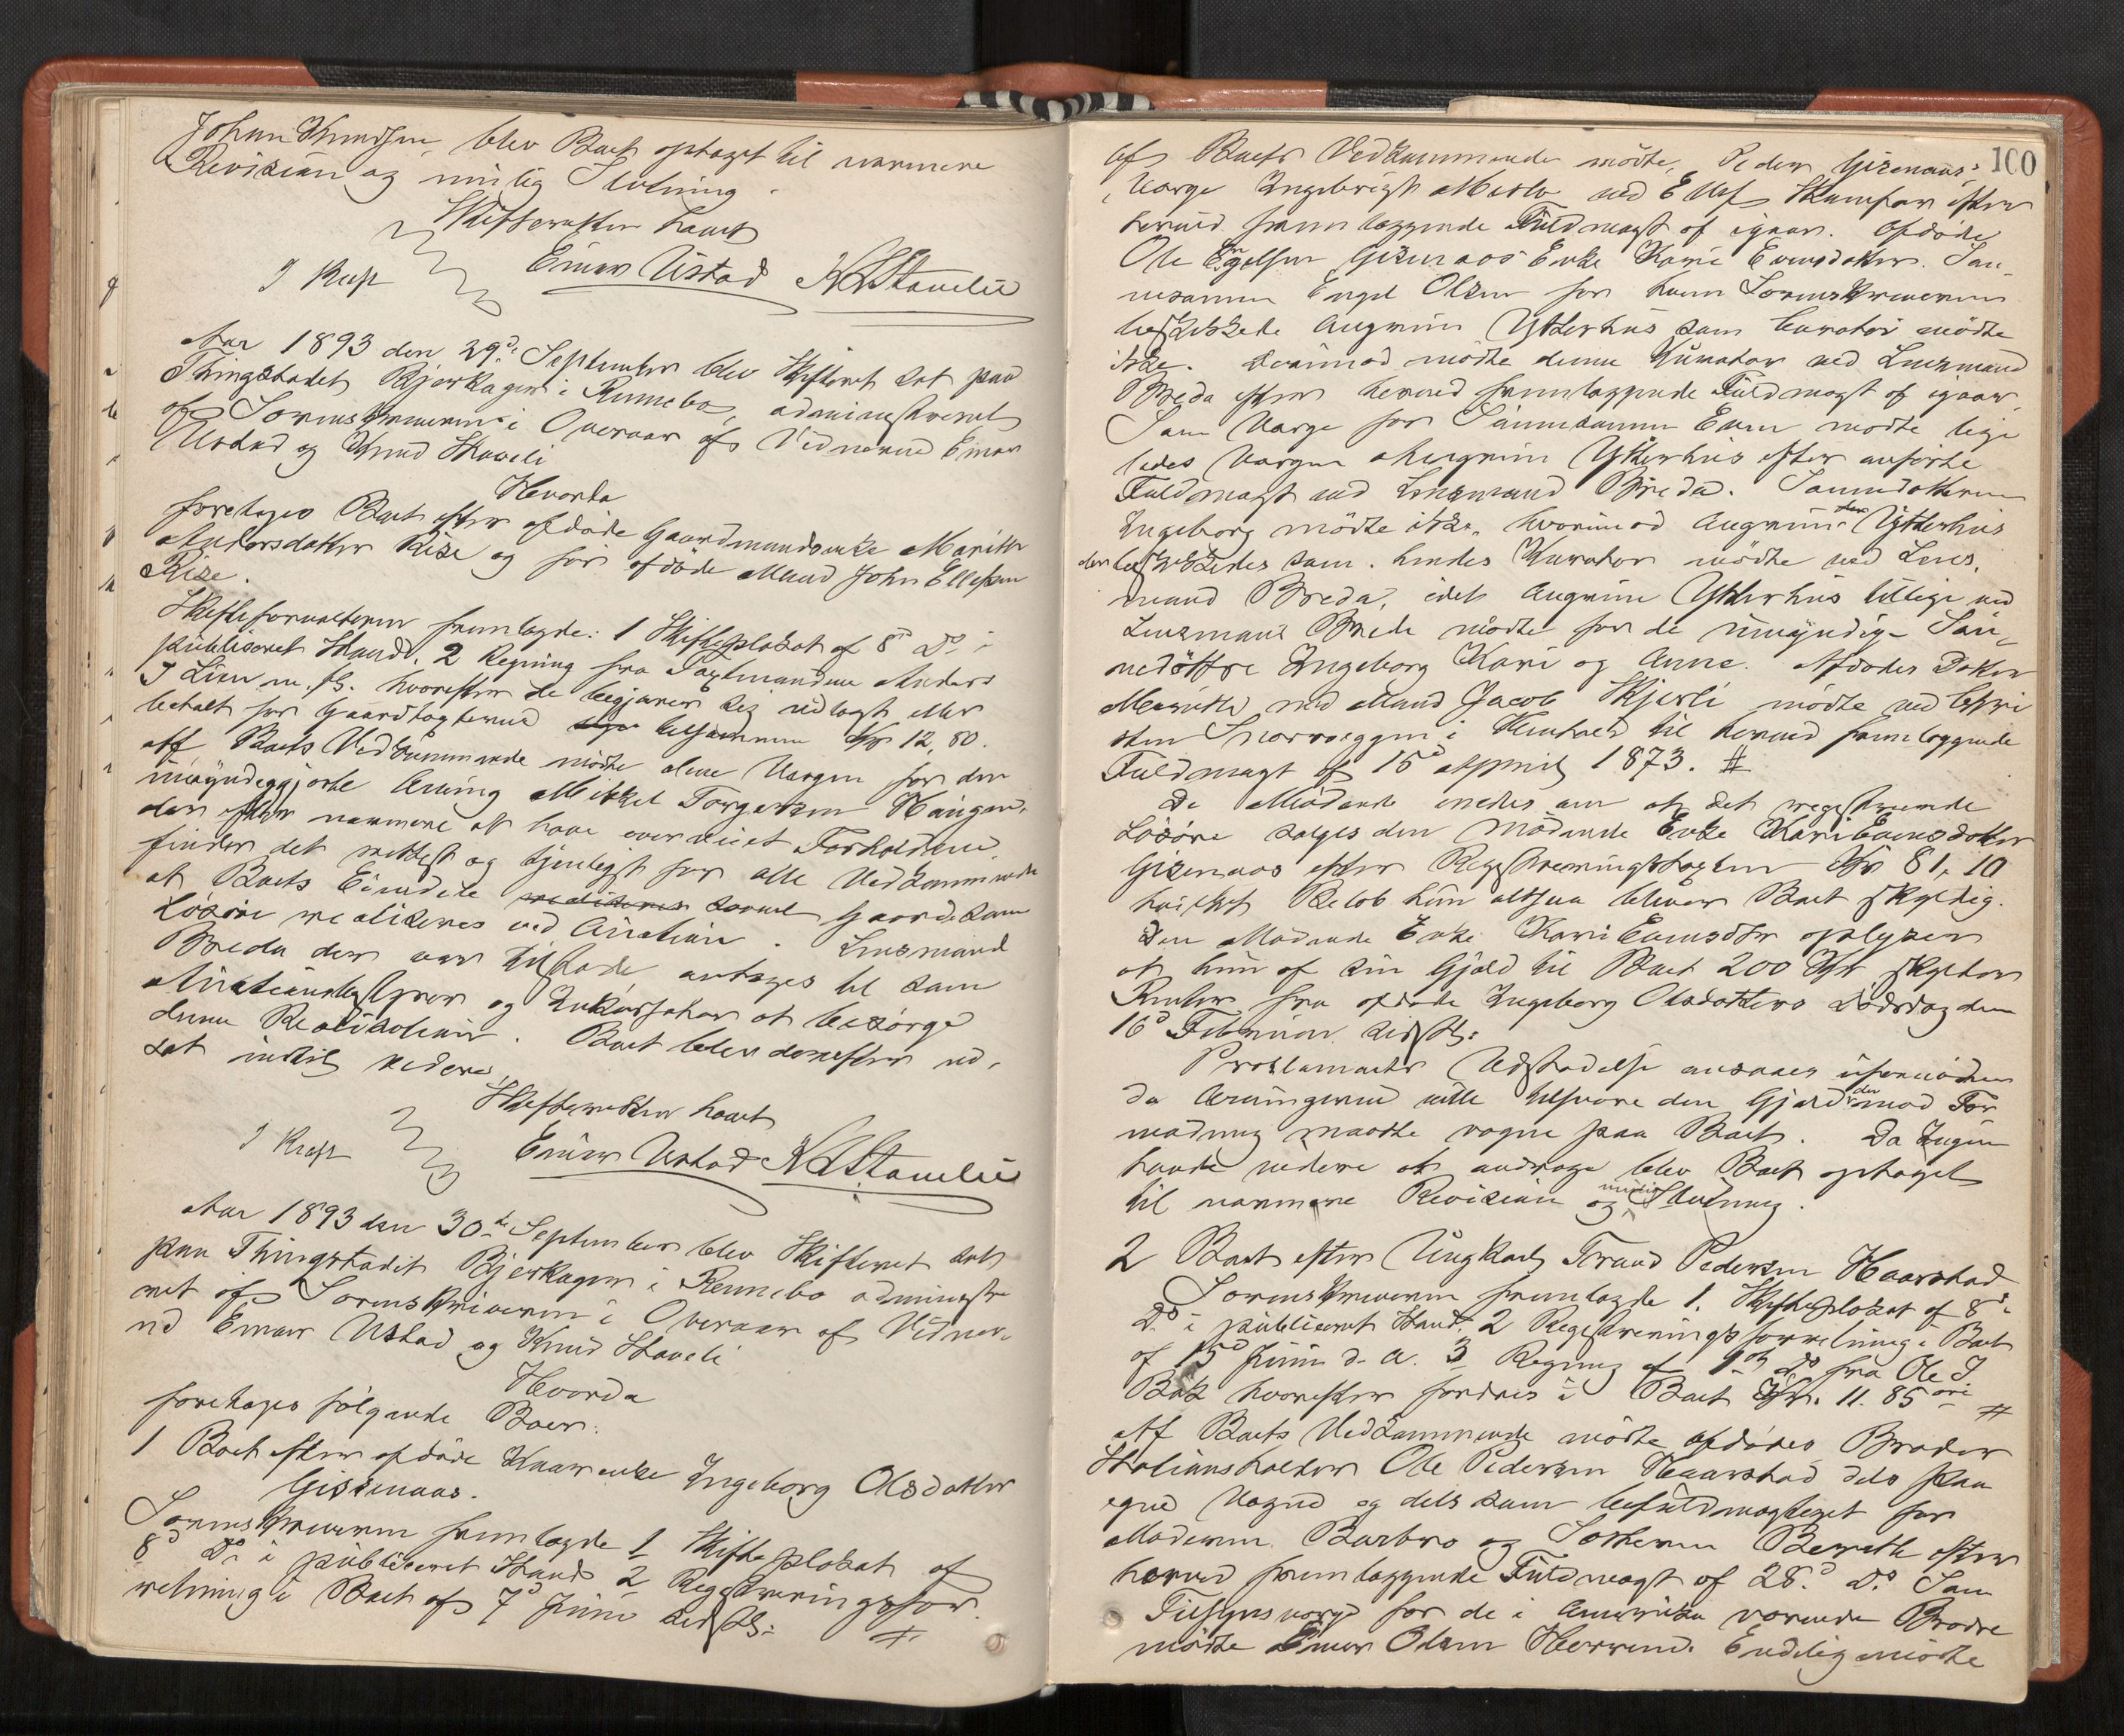 John Knudsen, blev Boet optaget til nærmere
Revision og mulig Slutning.
Skifteretten hævet
J Krag Einar Ustad K L Stavelii
Aar 1893 den 29de September blev Skifteret sat paa
Thingstedet Bjerkager i Rennebo, administreret
af Sorenskriveren i Overvær af Vidnerne Einar
Ustad og Knud Staveli
Hvorda
foretages Boet efter afdøde Gaardmandsenke Marith
Andersdatter Rise og før afdøde Mand John Ellefsen
Rise.
Skifteforvalteren fremlagde: 1 Skifteplakat af 8d Ds i
publiceret Stand. 2 Regning fra Taxtmændene Anders
J Lien m. fl. hvorefter de begjærer sig udlagt eller
betalt for Gaardtaxterne tilsammen Kr 12,80.
Af Boets Vedkommende mødte alene Værgen for den
umyndiggjorte Arving Mikkel Torgersen Haugen,
der efter nærmere at have overveiet Forholdene,
finder det rettest og tjenligst for alle Vedkommende
at Boets Eiendele realiseres saavel Gaard som
Løsøre realiseres ved Auction. Lensmand
Breda der var tilstede, antages til som
Auctionsbestyrer og Inkassator at besørge
denne Realisation. Boet blev derefter ud-
sat indtil videre,
Skifteretten hævet
J Krag Einar Ustad K L Stavelii
Aar 1893 den 30te September blev Skifteret sat
paa Thingstedet Bjerkager i Rennebo administre
ret af Sorenskriveren i Overvær af Vidner-
ne Einar Ustad og Knud Staveli
Hvorda
foretages følgende Boer:
1 Boet efter afdøde Kaarenke Ingeborg Olsdatter
Gisenaas.
Sorenskriveren fremlagde 1 Skifteplakat af
8d Ds i publiceret Stand 2 Registreringsfor-
retning i Boet af 7d Juni sidstl: #
100
Af Boets Vedkommende mødte, Peder Gisenaas'
Værge Ingebrigt Mesloe ved Ellef Skamfær efter
herved fremlæggende Fuldmagt af igaar. Afdøde
Ole Engelsen Gisenaas Enke Kari Evensdatter. Søn-
nesønnen Engel Olsen for hvem Sorenskriveren
beskikkede Angrim Ytterhus som Curator mødte
ikke. Derimod mødte denne Kurator ved Lensmand
Breda efter herved fremlæggende Fuldmagt af igaar.
Som Værge for Sønnesønnen Even mødte lige
ledes Værgen Angrim Ytterhus efter anførte
Fuldmagt ved Lensmand Breda. Sønnedatteren
Ingeborg mødte ikke, hvorimod Angrim Ytterhus
der beskikkedes som hendes Kurator mødte ved Lens-
mand Breda, idet Angrim Ytterhus tillige ved
Lensmand Breda mødte for de umyndige Søn-
nedøttre Ingeborg Kari og Anne. Afdødes Datter
Marith med Mand Jacob Skjerli mødte ved Chri
sten Snoxveggen i Henhold til herved fremlæggende
Fuldmagt af 15d April 1873. #
De Mødende enedes om at det registrerede
Løsøre sælges den mødende Enke Kari Evensdatter
Gisenaas efter Registreringstaxten Kr 81,10
hvilket Beløb hun altsaa bliver Boet skyldig.
Den Mødende Enke Kari Evensdtr oplyser
at hun af sin Gjæld til Boet 200 Kr skylder
Renter fra afdøde Ingeborg Olsdatters Dødsdag den
16d Februar sidstl:
Proklamaets Udstedelse ansaaes ufornøden
da Arvingerne ville tilsvare den Gjæld der mod For
modning maatte vogne paa Boet. Da Ingen
havde videre at andrage blev Boet optaget
til nærmere Revision og mulig Slutning.
2 Boet efter Ungkarl Trond Pedersen Haarstad
Sorenskriveren fremlagde 1. Skifteplakat af 8d
Ds i publiceret Stand 2 Registreringsforretning i Boet
af 15d Juni d. A. 3 Regning af 9d Ds fra Ole J
Bak hvorefter fordres i Boet Kr. 11.85 øre #
Af Boets Vedkommende mødte afdødes Broder
Stationsholder Ole Pedersen Haarstad dels paa
egne Vegne og dels som befuldmægtiget for
Moderen Barbro og Søsteren Berith efter
herved fremlæggende Fuldmagt af 28d Ds Som
Tilsynsværge for de i Amerika værende Brødre
mødte Einar Olsen Herrem. Endelig mødte